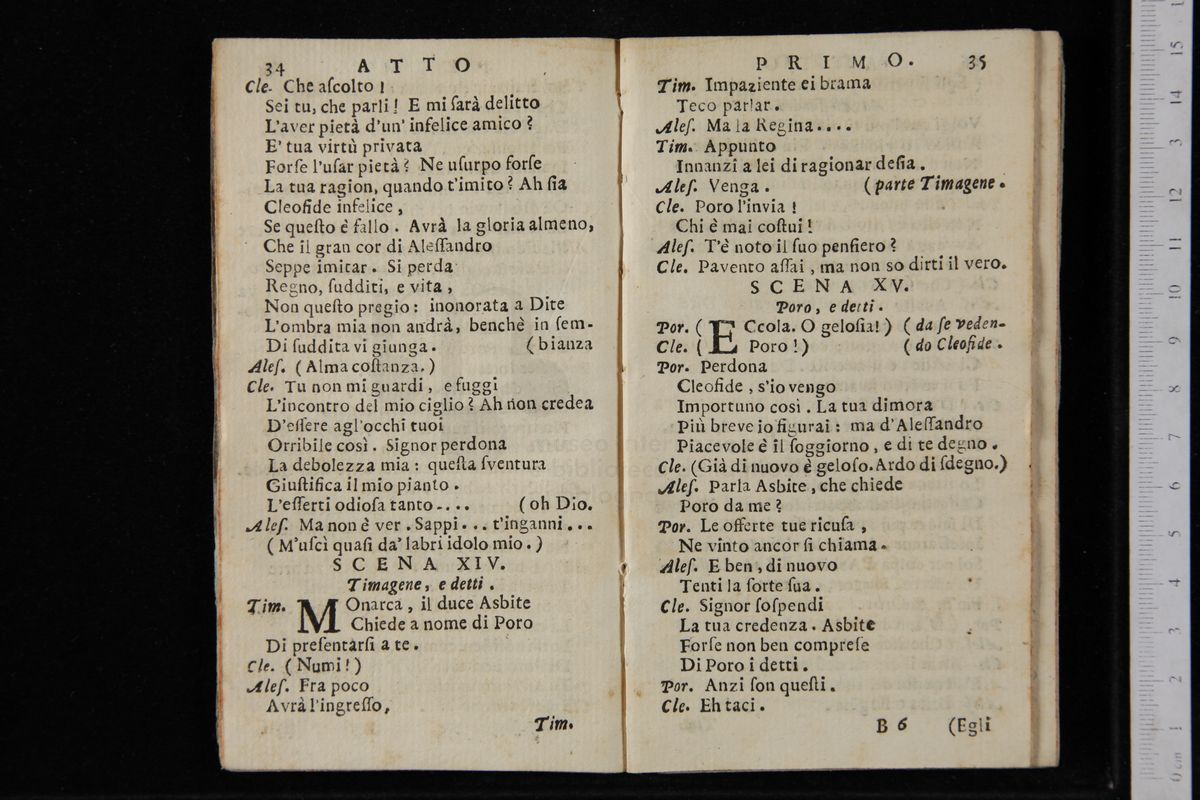 34 ATTO
Cle. Che aſcolto!
Sei tu, che parli! E mi ſarà delitto
L'aver pietà d'un' infelice amico?
E' tua virtù privata
Forſe l'uſar pietà? Ne uſurpo forſe
La tua ragion, quando t'imito? Ah ſia
Cleofide infelice,
Se queſto è fallo. Avrà la gloria almeno,
Che il gran cor di Aleſſandro
Seppe imitar. Si perda
Regno, ſudditi, e vita,
Non queſto pregio: inonorata a Dite
L'ombra mia non andrà, benchè in ſem-
Di ſuddita vi giunga. (bianza
Aleſ. (Alma coſtanza.)
Cle. Tu non mi guardi, e fuggi
L'incontro del mio ciglio? Ah non credea
D'eſſere agl'occhi tuoi
Orribile così. Signor perdona
La debolezza mia: queſta ſventura
Giuſtifica il mio pianto.
L'eſſerti odioſa tanto.... (oh Dio.
Aleſ. Ma non è ver. Sappi... t'inganni...
(M'uſcì quaſi da' labri idolo mio.)
SCENA XIV.
Timagene, e detti.
Tim. MOnarca, il duce Asbite
Chiede a nome di Poro
Di preſentarſi a te.
Cle. (Numi!)
Aleſ. Fra poco
Avrà l'ingreſſo,
Tim.
PRIMO. 35
Tim. Impaziente ei brama
Teco parlar.
Aleſ. Ma la Regina....
Tim. Appunto
Innanzi a lei di ragionar deſia.
Aleſ. Venga. (parte Timagene.
Cle. Poro l'invia!
Chi è mai coſtui!
Aleſ. T'è noto il ſuo penſiero?
Cle. Pavento aſſai, ma non so dirti il vero.
SCENA XV.
Poro, e detti.
Por. (ECcola. O geloſia!) (da ſe veden-
Cle. (Poro!) (do Cleofide.
Por. Perdona
Cleofide, s'io vengo
Importuno così. La tua dimora
Più breve io figurai: ma d'Aleſſandro
Piacevole è il ſoggiorno, e di te degno.
Cle. (Già di nuovo è geloſo. Ardo di ſdegno.)
Aleſ. Parla Asbite, che chiede
Poro da me?
Por. Le offerte tue ricuſa,
Ne vinto ancor ſi chiama.
Aleſ. E ben, di nuovo
Tenti la ſorte ſua.
Cle. Signor ſoſpendi
La tua credenza. Asbite
Forſe non ben compreſe
Di Poro i detti.
Por. Anzi ſon queſti.
Cle. Eh taci.
B 6 (Egli